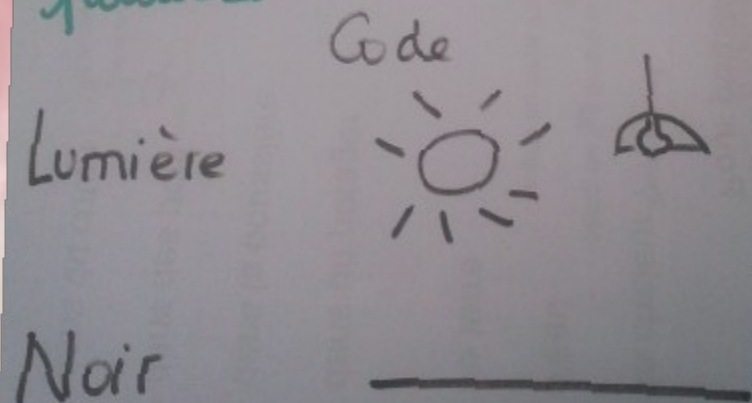 Code
Lumière
Noir